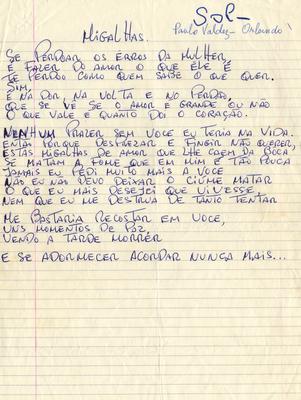 SOL-
Paulo Valdez - Orlando
MIGALHAS.
SE PERDOAR OS ERROS DA MULHER
E FAZER DO AMOR O QUE ELE É
TE PERDÔO COMO QUEM SABE O QUE QUER.
SIM,
E NA DOR, NA VOLTA E NO PERDÃO,
QUE SE VÊ SE O AMOR É GRANDE OU NÃO
O QUE VALE E QUANTO DOI O CORAÇÃO.
NENHUM PRAZER SEM VOCE EU TERIA NA VIDA.
ENTÃO PORQUE DESPREZAR E FINGIR NÃO QUERER,
ESTAS MIGALHAS DE AMOR QUE LHE CAEM DA BOCA
SE MATAM A FOME QUE EM MIM É TÃO POUCA
JAMAIS EU PEDI MUITO MAIS A VOCE
NÃO EU NÃO DEVO DEIXAR O CIÚME MATAR
O QUE EU MAIS DESEJEI QUE VIVESSE,
NEM QUE EU ME DESTRUA DE TANTO TENTAR
ME BASTARIA RECOSTAR EM VOCE,
UNS MOMENTOS DE PAZ,
VENDO A TARDE MORRER
E SE ADORMECER ACORDAR NUNCA MAIS...